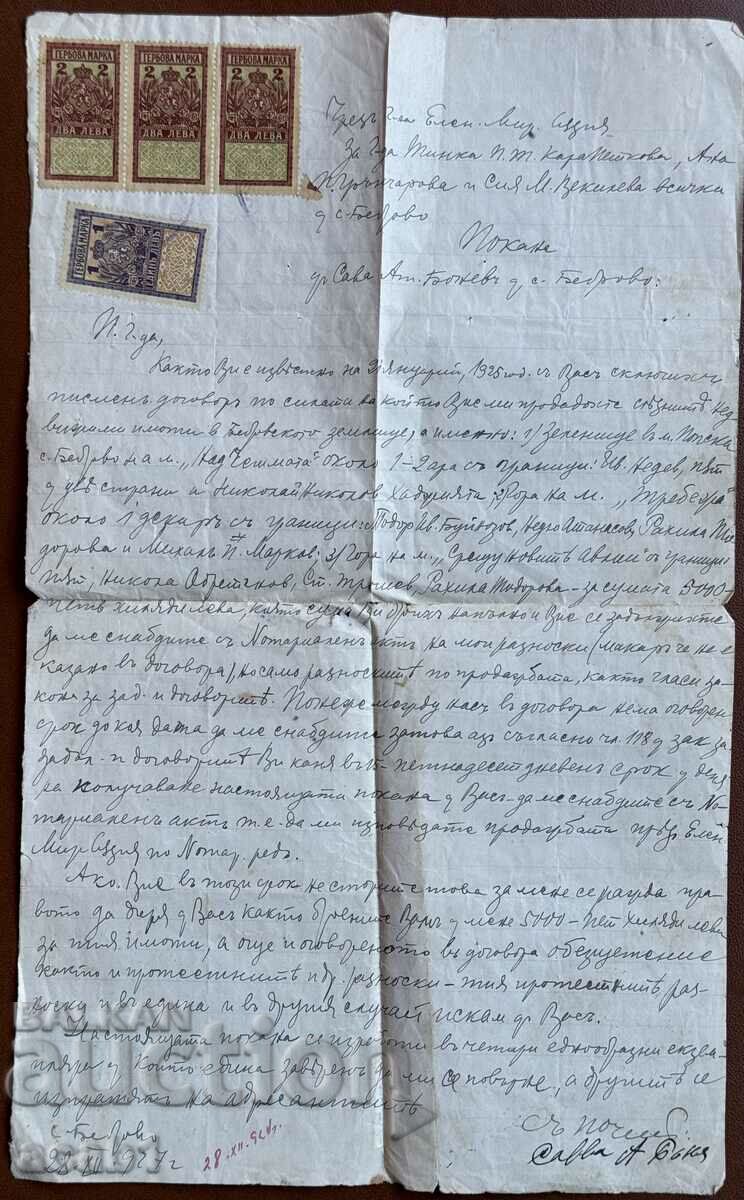 ГЕРБОВА МАРКА ГЕРБОВА МАРКА ГЕРБОВА МАРКА
2 2 2 2 2 2
ДВА ЛЕВА ДВА ЛЕВА ДВА ЛЕВА
ГЕРБОВА МАРКА
1 1
ЕДИНЪ ЛЕВЪ
Чрезъ Г-на Елен. Мир. Сядия
За Г-да Тинка П. Т. Кара Петкова, Ана
и Сия М. Векилева всички
с. Беброво
Покана
Сава Ат. Боневъ с. Беброво.
П. Г-да,
Както Ви е известно на Януарий, 1925 год. съ Васъ сключихъ
писменъ договоръ по силата на който Вие ми продадохте следните нед
вижими имоти в Бебровското землище, а именно: 1/ Зеленище в м.
с. Беброво на м. "Над Чешмата" около 1-2 ара съ граници: Ив. Недев, пѫт
две страни и Николай Николов 2) Гора на м. "Требежа"
около 1 декаръ съ граници: Тодор Ив. Недю Атанасов, Рахила То
дорова и Михалъ П. Марков: 3/ Гора на м. "Срещу Новитѣ с граници
пѫт, Никола Ст. Рахила Тодорова - за сумата 5000 -
петь хиляди лева, която сума Ви броих напълно и Вие се задължихте
да ме снабдите съ Нотариаленъ актъ на мои разноски (макаръ че не е
казано въ договора), но само разноскитѣ по продажбата, както гласи за-
кона за зад. и договоритѣ. Понеже между насъ в договора нема оговорен
срок до коя дата да ме снабдите затова азъ съгласно чл 118 зак за
задъл. и договоритѣ Ви каня въ 15 - петнадесет дневенъ срок
получаване настоящата покана Васъ да ме снабдите съ Но-
тариаленъ актъ т.е. да ми изповѣдате продажбата прѣдъ Елен
Мир Сядия по Нотар. редъ.
Ако Вие в този срок не сторите това за мене се ражда пра-
вото да диря Васъ както броените Вамъ мене 5000 - пет хиляди лева
за тия имоти, а още и оговореното въ договора обезщетение
както и протестните и др. разноски - тия протестнитѣ раз-
носки и въ едина и въ другия случай искам Васъ.
Настоящата покана се изработи въ четири еднообразни екзем
пляра който едина завѣренъ да ми се повърне, а другитѣ се
изпратятъ на адресантитѣ
с. Беброво
28. XII 927 г
28. XII. 927 г.
Съ почит:
Савва А
БАЛКАН
auction